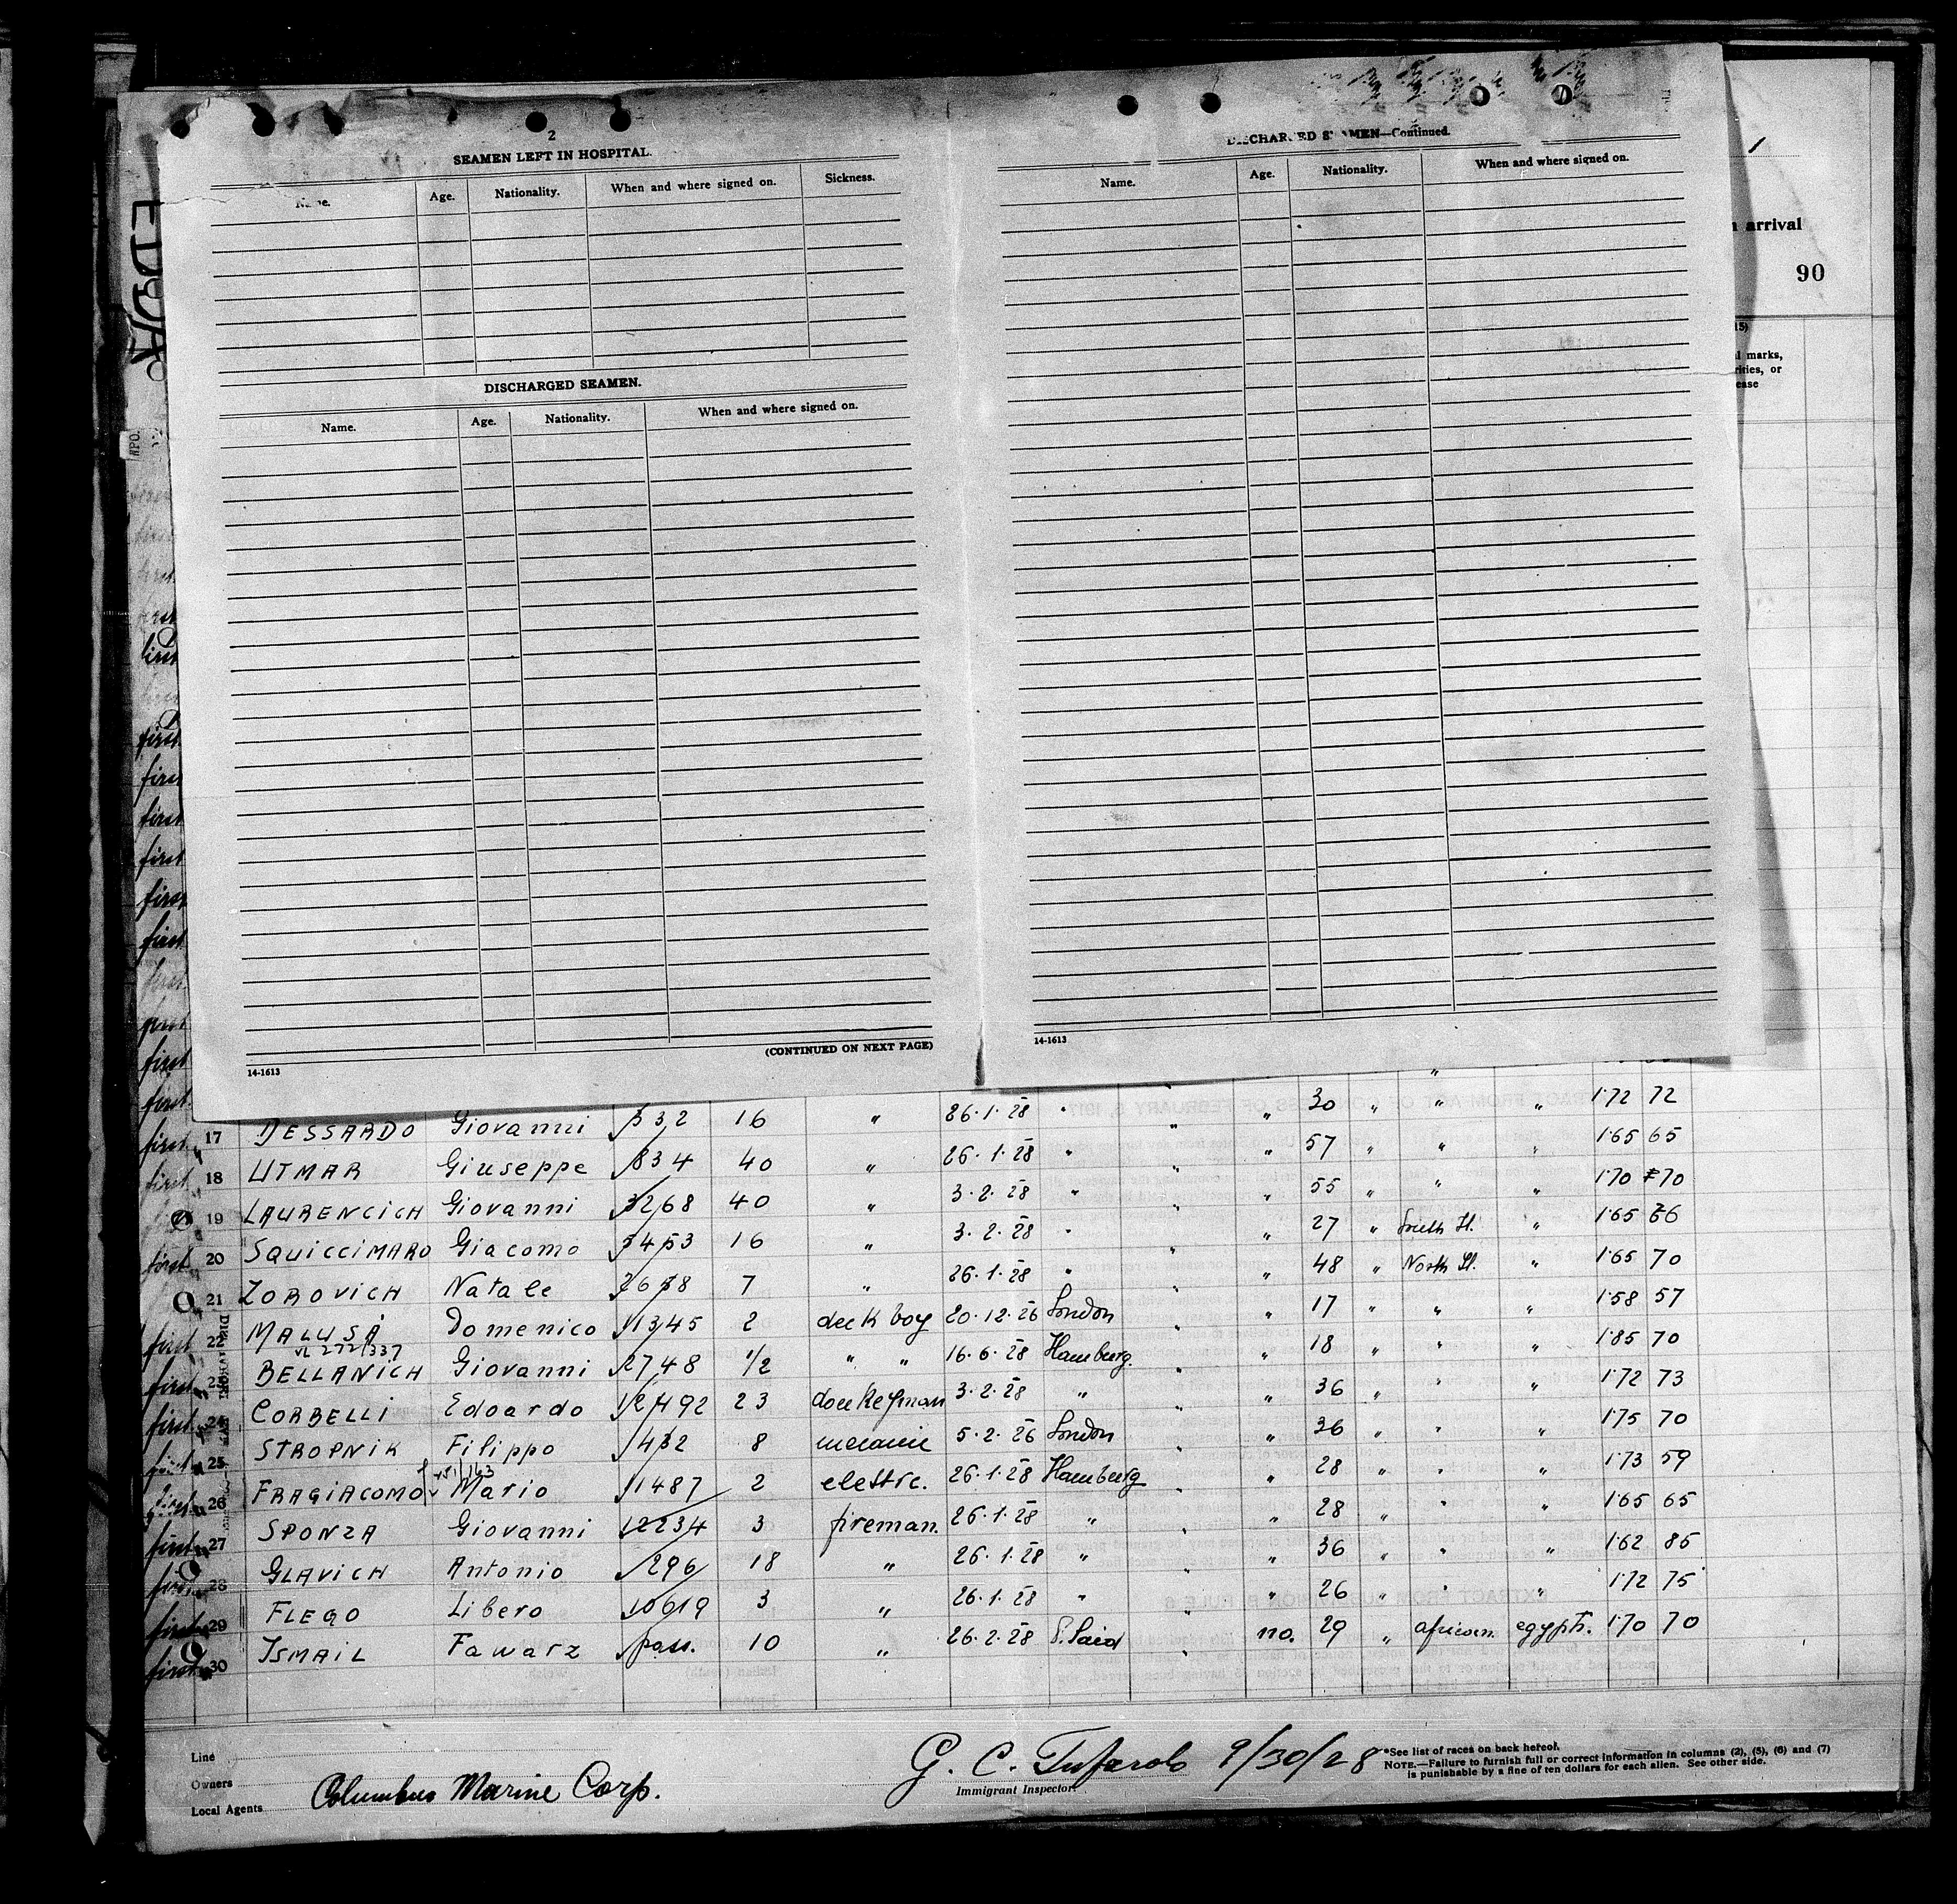 2
SEAMEN LEFT IN HOSPITAL.
Name. Age. Nationality. When and where signed on. Sickness.
DISCHARGED SEAMEN.
Name. Age. Nationality. When and where signed on.
(CONTINUED ON NEXT PAGE)
14-1613
DISCHARGED SEAMEN—Continued.
Name. Age. Nationality. When and where signed on.
14-1613
arrival
90
marks,
or
30 " " " 1·72 72
17 DESSARDO Giovanni 532 16 " 26·1·28 " " " 57 " " " 1·65 65
18 UTMAR Giuseppe 834 40 " 26·1·28 " " " 55 " " " 1·70 70
19 LAURENCICH Giovanni 3268 40 " 3·2·28 " " " 27 " South It. " 1·65 66
20 SQUICCIMARO Giacomo 5453 16 " 3·2·28 " " " 48 " North It. " 1·65 70
21 ZOROVICH Natale 7 " 26·1·28 " " " 17 " " " 1·58 57
22 MALUSÀ Domenico 11345 2 deck boy 20·12·26 London " " 18 " " " 1·85 70
BELLANICH Giovanni 2748 1/2 " " 16·6·28 Hamburg " " 36 " " " 1·72 73
24 CORBELLI Edoardo 12492 23 donkeyman 3·2·28 " " " 36 " " " 1·75 70
25 STROPNIK Filippo 432 8 5·2·26 London " " 28 " " " 1·73 59
26 FRAGIACOMO Mario 11487 2 elettric. 26·1·28 Hamburg " " 28 " " " 1·65 65
27 SPONZA Giovanni 12234 3 fireman. 26·1·28 " " " 36 " " " 1·62 85
28 GLAVICH Antonio 296 18 " 26·1·28 " " " 26 " " " 1·72 75
29 FLEGO Libero 10619 3 " 26·1·28 " " no. 29 " african. egypt. 1·70 70
30 ISMAIL Fawarz pass. 10 " 26·2·28 P. Said "
Line
Owners
Local Agents Columbus Marine Corp.
G. C. Tufarolo 9/30/28
Immigrant Inspector.
*See list of races on back hereof.
NOTE.—Failure to furnish full or correct information in columns (2), (5), (6) and (7)
is punishable by a fine of ten dollars for each alien. See other side.